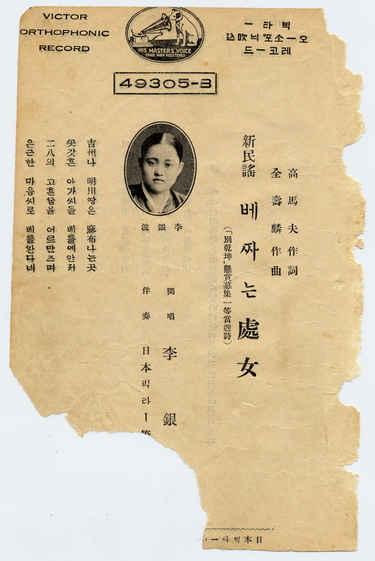 VICTOR
ORTHOPHONIC
RECORD
HIS MASTER'S VOICE
빅타ー
오ー소포닉吹込
레코ー드
49305-B
高馬夫作詞
全壽麟作曲
新民謠 베짜는處女
(「別乾坤」懸賞募集一等當選詩)
李銀波
獨唱 李銀
伴奏 日本빅타ー
吉州나 明川땅은 麻布나는곳
아가씨들 베틀에안저
二八의 어르만즈며
은근한 마음씨로 베를짠다네
日本빅타ー